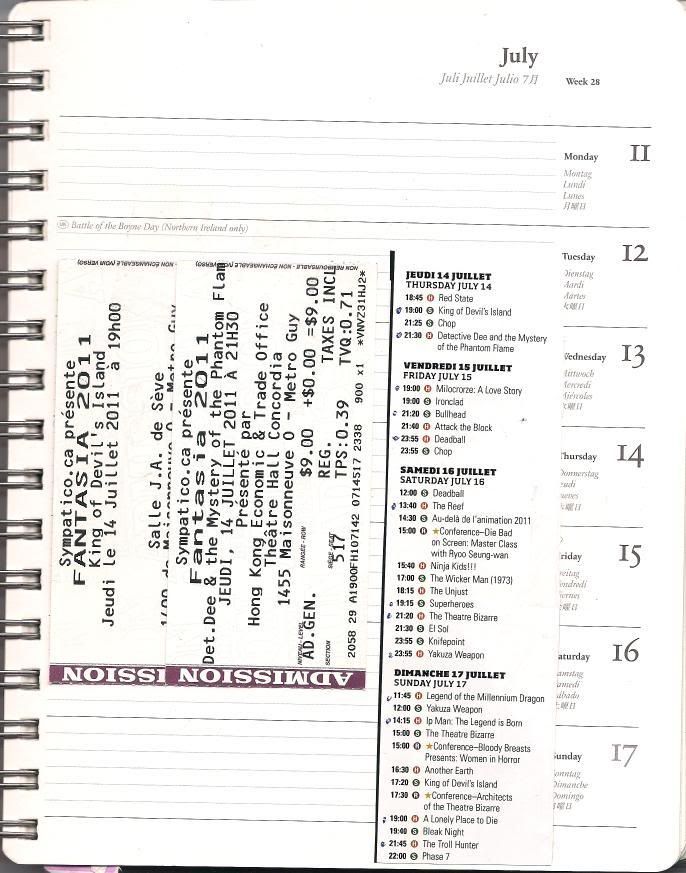 July
Juli Juillet Julio 7月 Week 28
Monday 11
Montag
Lundi
Lunes
月曜日
UK Battle of the Boyne Day (Northern Ireland only)
Tuesday 12
Dienstag
Mardi
Martes
火曜日
Wednesday 13
Mittwoch
Mercredi
Miércoles
水曜日
Thursday 14
Donnerstag
Jeudi
Jueves
曜日
Friday 15
Freitag
Vendredi
Viernes
曜日
Saturday 16
Samstag
Samedi
Sábado
曜日
Sunday 17
Sonntag
Dimanche
Domingo
曜日
NON ÉCHANGEABLE (VOIR VERSO)
Sympatico.ca présente
FANTASIA 2011
King of Devil's Island
Jeudi le 14 Juillet 2011 à 19h00
Salle J.A. de Sève
1400 de Maisonneuve O - Metro Guy
ISSION
NON ÉCHANGEABLE - NON REMBOURSABLE
Sympatico.ca présente
Fantasia 2011
Det.Dee & the Mystery of the Phantom Flam
JEUDI, 14 JUILLET 2011 À 21H30
Présenté par
Hong Kong Economic & Trade Office
Theâtre Hall Concordia
1455 Maisonneuve O - Metro Guy
NIVEAU-LEVEL RANGÉE-ROW
AD.GEN. $9.00 +$0.00 =$9.00
REG. TAXES INCL
SECTION SIÈGE-SEAT
517 TPS:0.39 TVQ:0.71
2058 29 A1900FH107142 0714517 2338 900 x1 *VNVZ31HJ2*
ADMISSION
JEUDI 14 JUILLET
THURSDAY JULY 14
18:45 H Red State
19:00 S King of Devil's Island
21:25 S Chop
21:30 H Detective Dee and the Mystery
of the Phantom Flame
VENDREDI 15 JUILLET
FRIDAY JULY 15
19:00 H Milocrorze: A Love Story
19:00 S Ironclad
21:20 S Bullhead
21:40 H Attack the Block
23:55 H Deadball
23:55 S Chop
SAMEDI 16 JUILLET
SATURDAY JULY 16
12:00 S Deadball
13:40 H The Reef
14:30 S Au-delà de l'animation 2011
15:00 R ★Conference–Die Bad
on Screen: Master Class
with Ryoo Seung-wan
15:40 H Ninja Kids!!!
17:00 S The Wicker Man (1973)
18:15 H The Unjust
19:15 S Superheroes
21:20 H The Theatre Bizarre
21:30 S El Sol
23:55 S Knifepoint
23:55 H Yakuza Weapon
DIMANCHE 17 JUILLET
SUNDAY JULY 17
11:45 H Legend of the Millennium Dragon
12:00 S Yakuza Weapon
14:15 H Ip Man: The Legend is Born
15:00 S The Theatre Bizarre
15:00 R ★Conference–Bloody Breasts
Presents: Women in Horror
16:30 H Another Earth
17:20 S King of Devil's Island
17:30 R ★Conference–Architects
of the Theatre Bizarre
19:00 H A Lonely Place to Die
19:40 S Bleak Night
21:45 H The Troll Hunter
22:00 S Phase 7